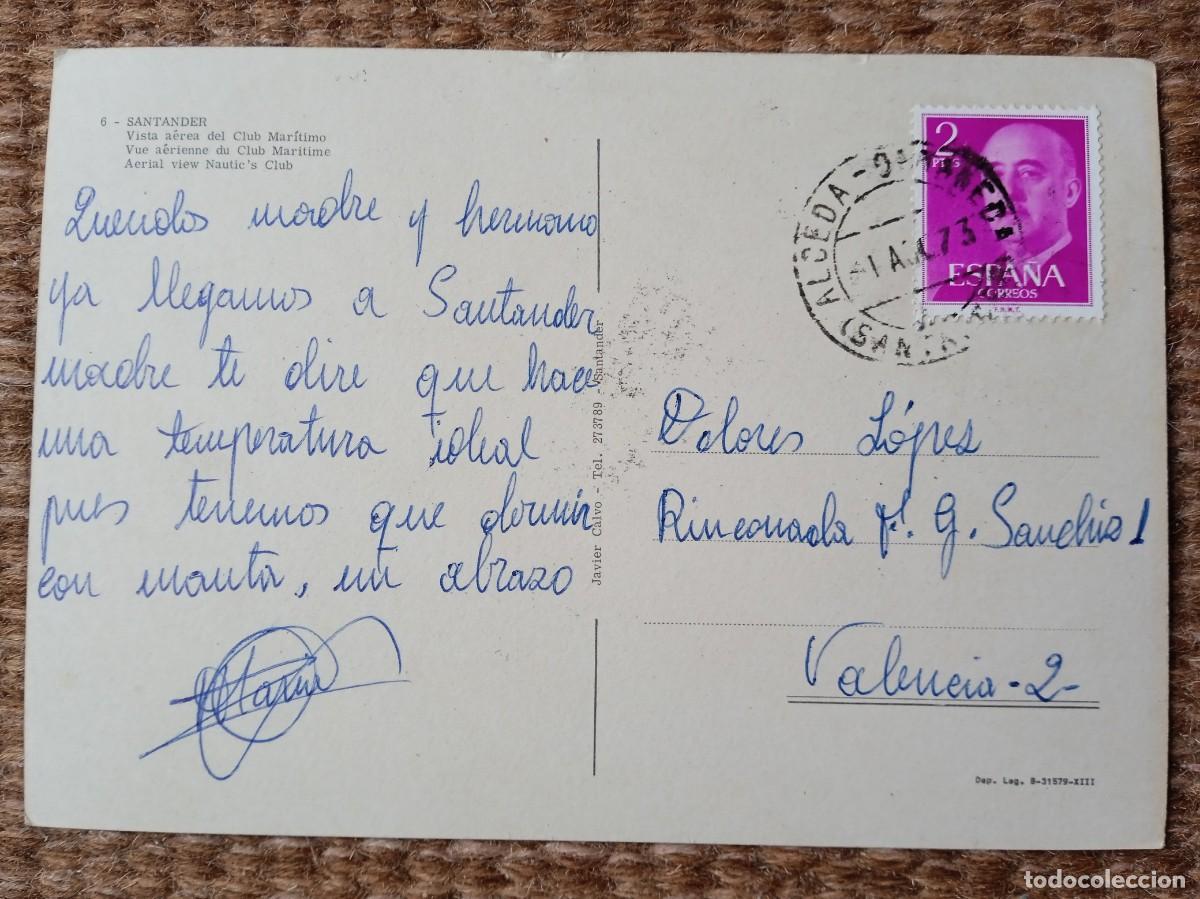 6 - SANTANDER
Vista aérea del Club Marítimo
Vue aérienne du Club Maritime
Aerial view Nautic's Club
Queridos madre y hermano
ya llegamos a Santander
madre te dire que hace
una temperatura ideal
pues tenemos que dormir
con manta, un abrazo
Maria
Javier Calvo - Tel. 273789 - Santander
2
PTS
ESPAÑA
CORREOS
F.N.M.T.
ALCEDA-ONTANEDA
73
(SANTA
Dolores López
Rinconada F. G. Sanchiz 1
Valencia-2-
Dep. Leg. B-31579-XIII
todocoleccion